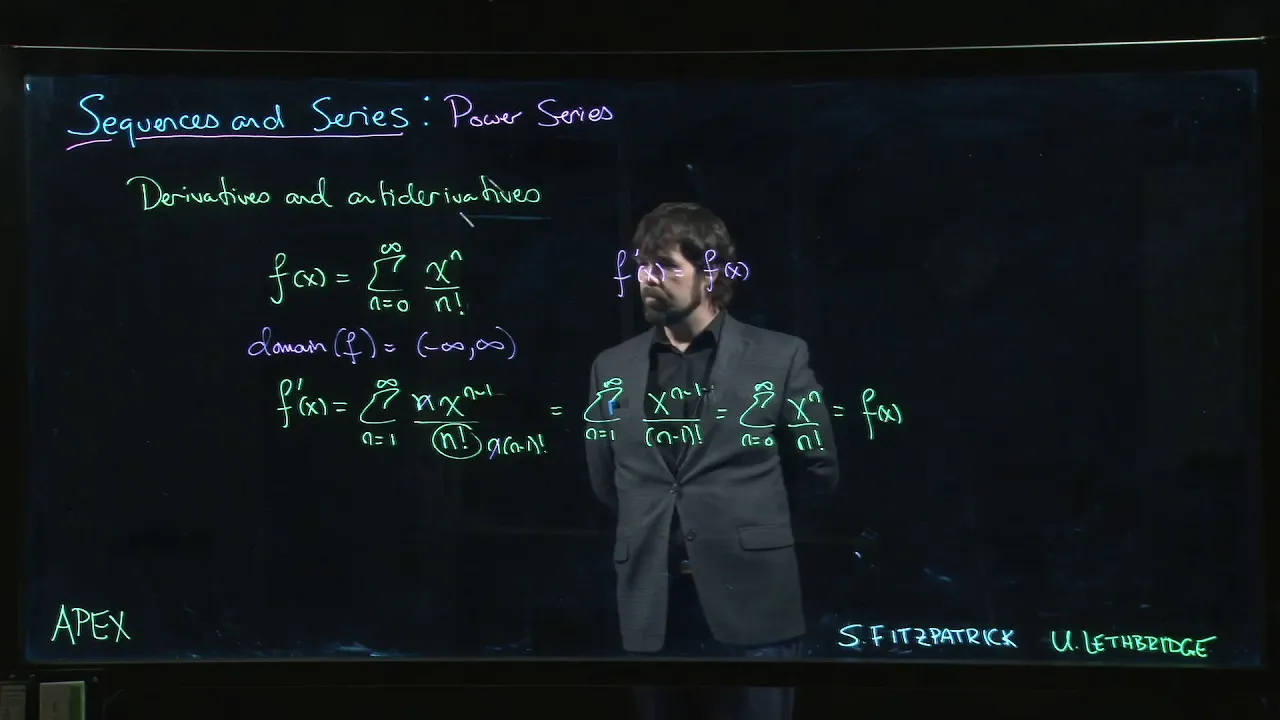 Sequences and Series : Power Series
Derivatives and antiderivatives
f(x) = ∑_{n=0}^{∞} x^n/n!
f'(x) = f(x)
domain(f) = (-∞, ∞)
f'(x) = ∑_{n=1}^{∞} n x^{n-1}/n! n(n-1)! = ∑_{n=1}^{∞} x^{n-1}/(n-1)! = ∑_{n=0}^{∞} x^n/n! = f(x)
APEX
S. FITZPATRICK U. LETHBRIDGE